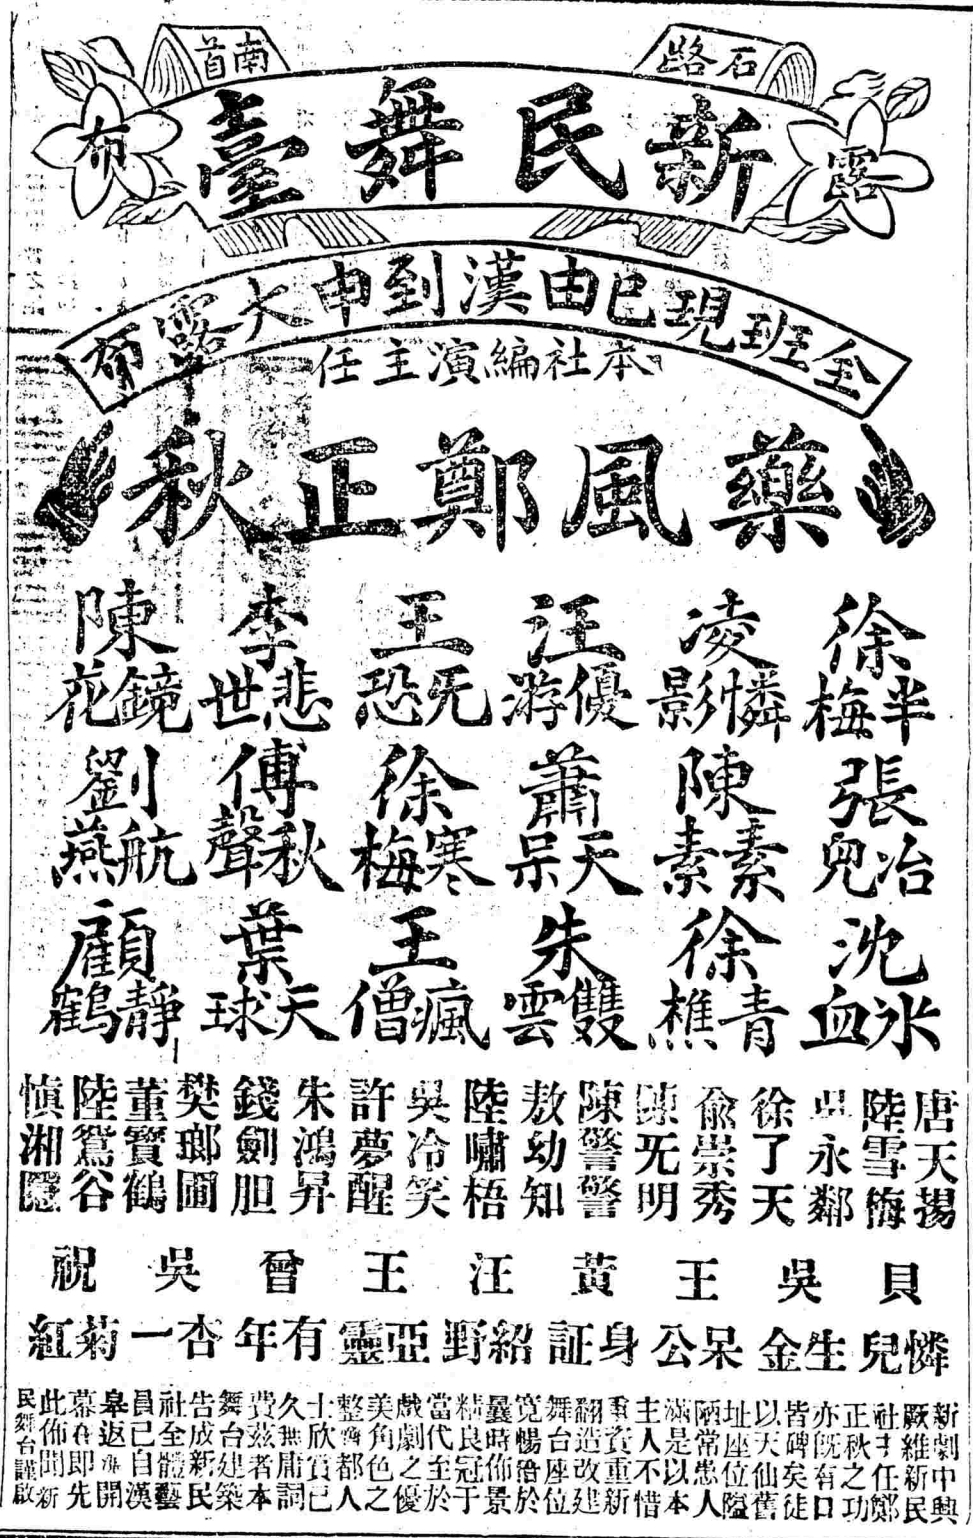 石路
南首
露
新民舞臺
布
全班現已由漢到申大露布
本社編演主任
藥風鄭正秋
徐半梅
凌憐影
汪優游
王旡恐
李悲世
陳鏡花
張冶兒
陳素素
蕭天呆
徐寒梅
傅秋聲
劉航燕
沈冰血
徐青樵
朱雙雲
王瘋僧
葉天球
顧靜鶴
唐天揚
陸雪梅
吳永鄰
徐了天
俞崇秀
陳旡明
陳警警
敖幼知
陸嘯梧
吳冷笑
許夢醒
朱鴻昇
錢劍胆
樊瑯圃
董寶鶴
陸鴛谷
慎湘隱
貝憐兒
吳生金
王呆公
黃身証
汪紹野
王亞靈
曾有年
吳杏一
祝菊紅
新劇中興
厥維新民
社主任鄭
正秋之功
亦既有口
皆碑矣徒
以天仙舊
址座位隘
陋常患人
滿是以本
主人不惜
重資重新
翻造改建
舞台座位
寬暢於
曇時佈景
精良冠于
當代至於
戲劇之優
美角色之
整齊都人
士欣賞已
久無庸詞
費茲者本
舞台建築
告成新民
社全體藝
員已自漢
皐返滬開
幕在即先
此佈聞新
民舞台謹啟